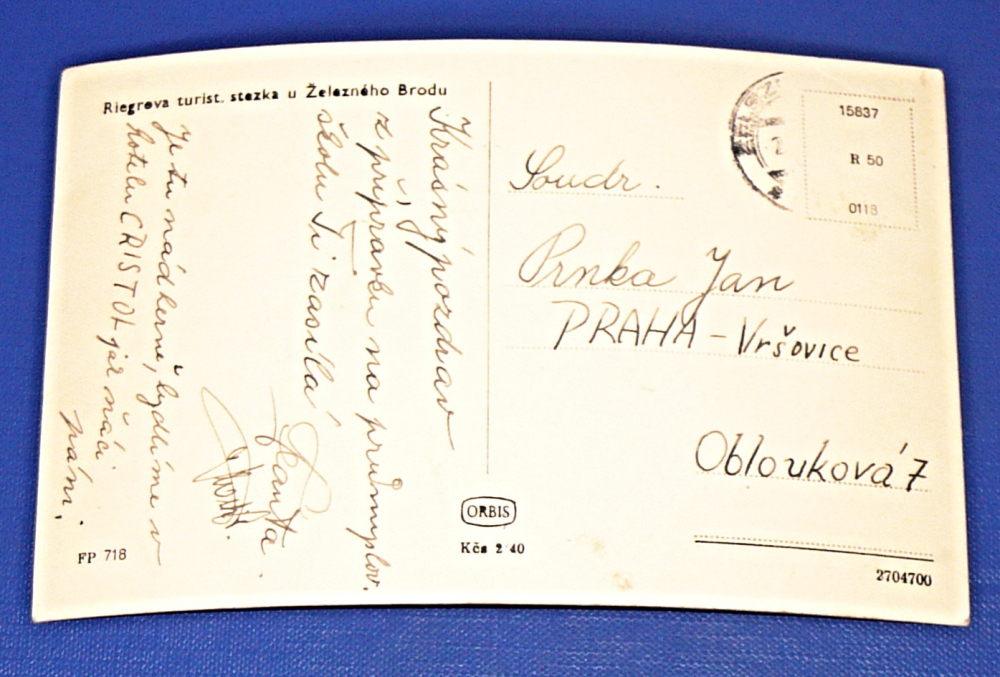 Riegrova turist. stezka u Železného Brodu
Krásný pozdrav
z přípravku na průmyslov.
školu Ti zasílá
Franta
Je tu nádherně, bydlíme v
hotelu CRISTOL jak ňáci
páni.
FP 718
ORBIS
Kčs 2 40
15837
R 50
0118
Soudr.
Prnka Jan
PRAHA - Vršovice
Oblouková 7
2704700